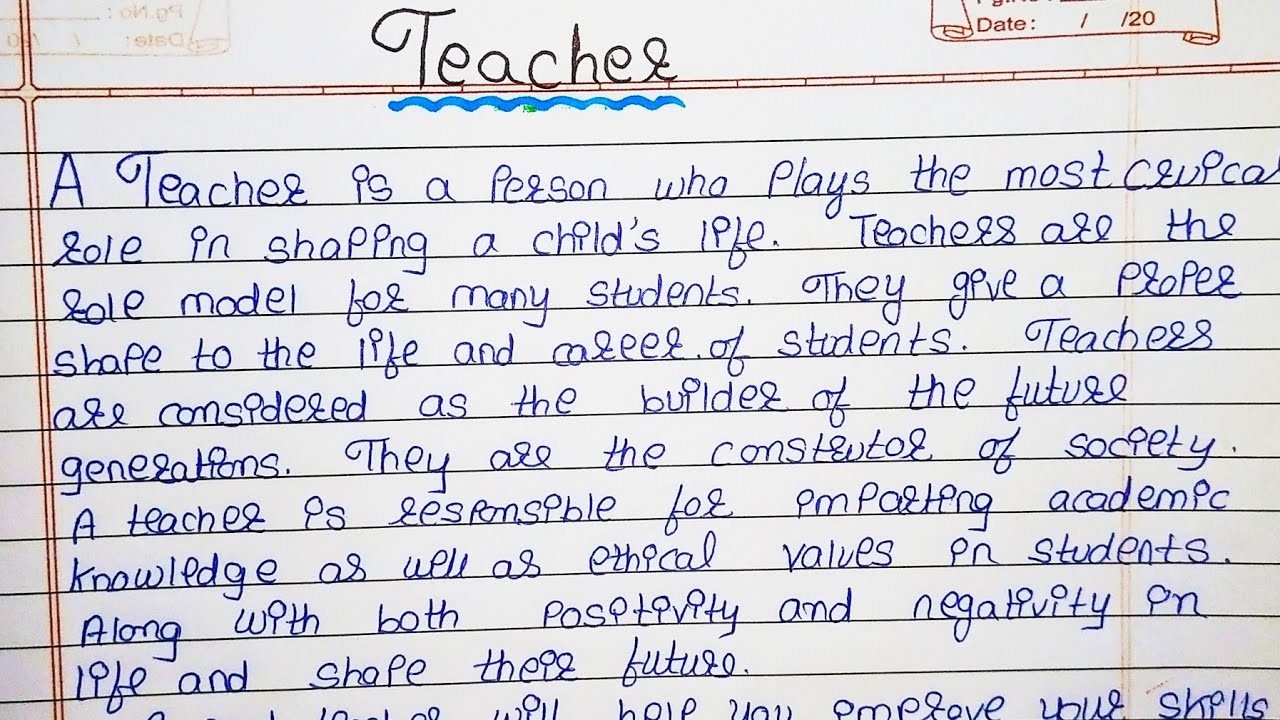 Date: / /20
Teacher
A Teacher is a Person who Plays the most Cruica
role in shaping a child's life. Teachers are the
role model for many students. They give a Proper
shape to the life and career of students. Teachers
are considered as the builder of the future
generations. They are the construtor of society.
A teacher is responsible for imparting academic
knowledge as well as ethical values in students.
Along with both positivity and negativity in
life and shape their future.
will help you improve your skills